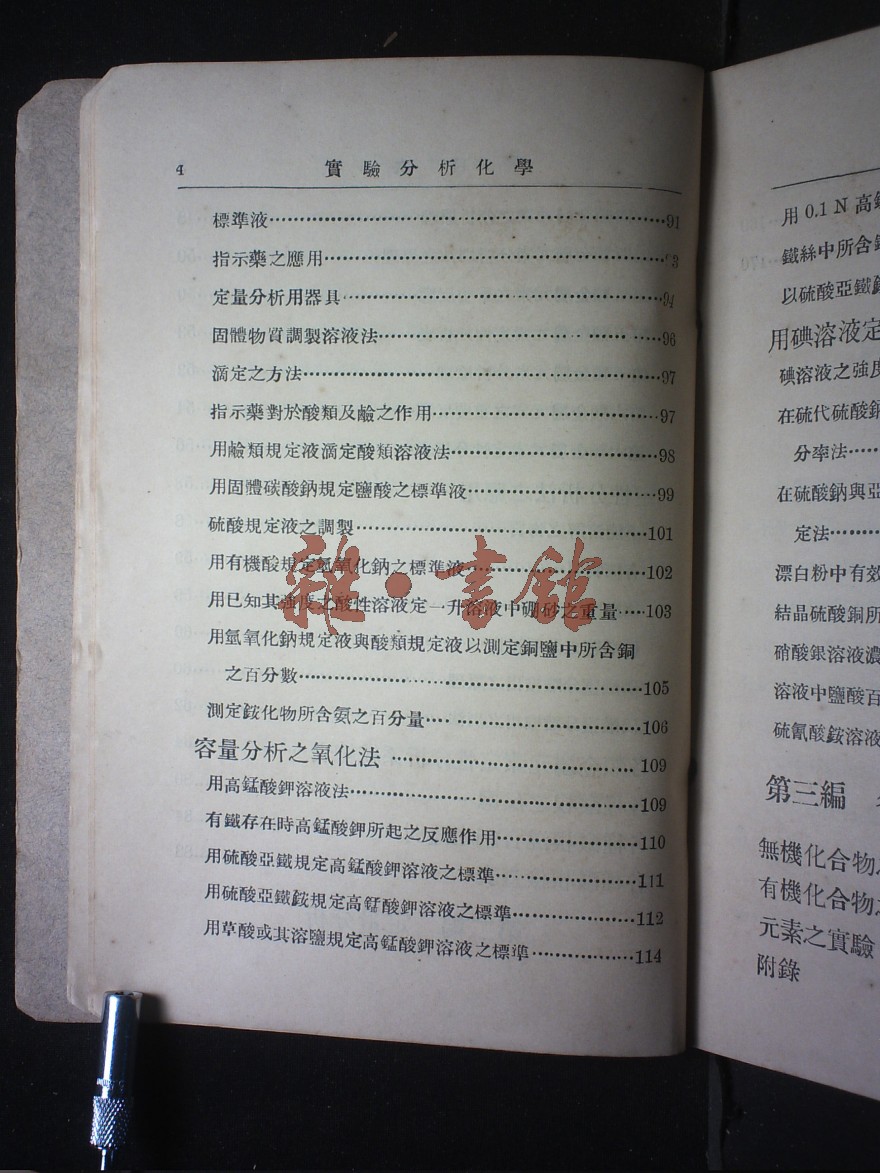 4 實驗分析化學
標準液……91
指示藥之應用……93
定量分析用器具……94
固體物質調製溶液法……96
滴定之方法……97
指示藥對於酸類及鹼之作用……97
用鹼類規定液滴定酸類溶液法……98
用固體碳酸鈉規定鹽酸之標準液……99
硫酸規定液之調製……101
用有機酸規定氫氧化鈉之標準液……102
用已知其強度之酸性溶液定一升溶液中硼砂之重量……103
用氫氧化鈉規定液與酸類規定液以測定銅鹽中所含銅
之百分數……105
測定銨化物所含氨之百分量……106
容量分析之氧化法……109
用高錳酸鉀溶液法……109
有鐵存在時高錳酸鉀所起之反應作用……110
用硫酸亞鐵規定高錳酸鉀溶液之標準……111
用硫酸亞鐵銨規定高錳酸鉀溶液之標準……112
用草酸或其溶鹽規定高錳酸鉀溶液之標準……114
雜·書館
用 0.1 N 高
鐵絲中所含
以硫酸亞鐵
用碘溶液定
碘溶液之強度
在硫代硫酸
分率法……
在硫酸鈉與亞
定法……
漂白粉中有效
結晶硫酸銅所
硝酸銀溶液濃
溶液中鹽酸百
硫氰酸銨溶液
第三編
無機化合物
有機化合物
元素之實驗
附錄